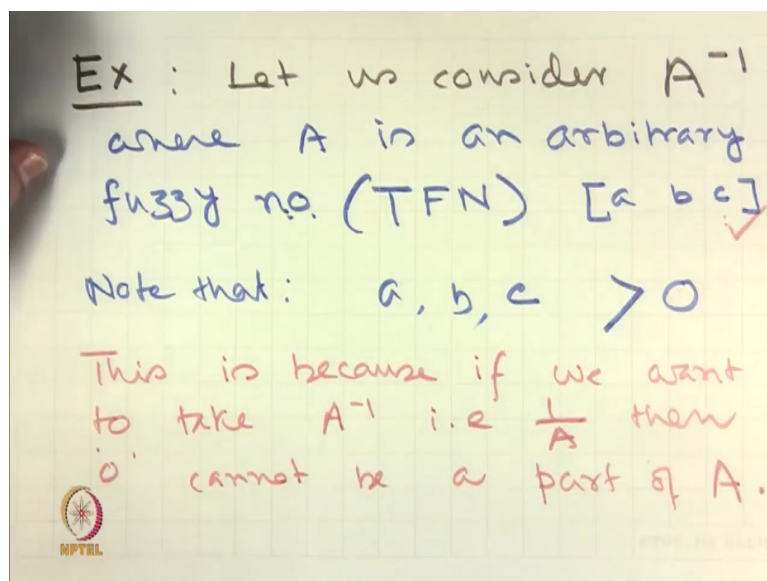 Ex : Let us consider A⁻¹
where A is an arbitrary
fuzzy no. (TFN) [a b c]
Note that: a, b, c > 0
This is because if we want
to take A⁻¹ i.e 1/A then
'0' cannot be a part of A.
NPTEL